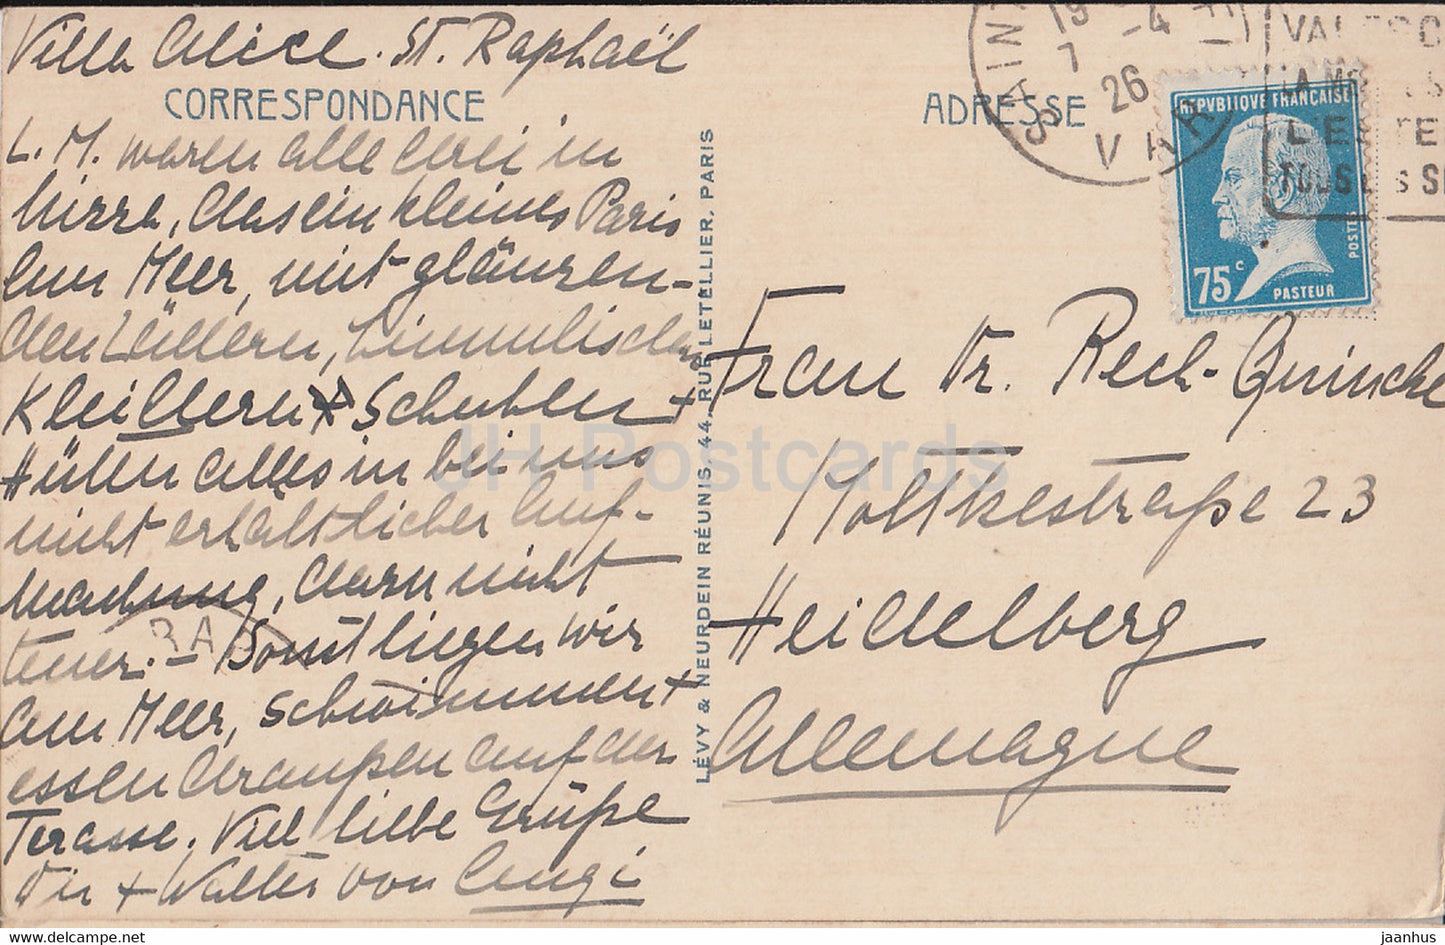 Villa Alice. St. Raphaël
CORRESPONDANCE
L. M. waren alle drei in
Nizza, das ein kleines Paris
am Meer, mit glänzen-
den Läden, himmlischen
Kleidern + Schuhen +
Hüten alles in bei uns
nicht erhältlicher Auf-
machung, dazu nicht
teuer. – Sonst liegen wir
am Meer, schwimmen +
essen draußen auf der
Terasse. Viel liebe Grüße
Dir + Walter von
LÉVY & NEURDEIN RÉUNIS, 44, RUE LETELLIER, PARIS
ADRESSE
SAINT
19
7 -4
26
VAR
VALESC
L'ESTE
TOUS LES S
REPVBLIQVE FRANÇAISE
POSTES
75 c
PASTEUR
Frau Dr. Rech-Quincke
Moltkestraße 23
Heidelberg
Allemagne
JH Postcards
www.jhpostcards.com
jaanhus